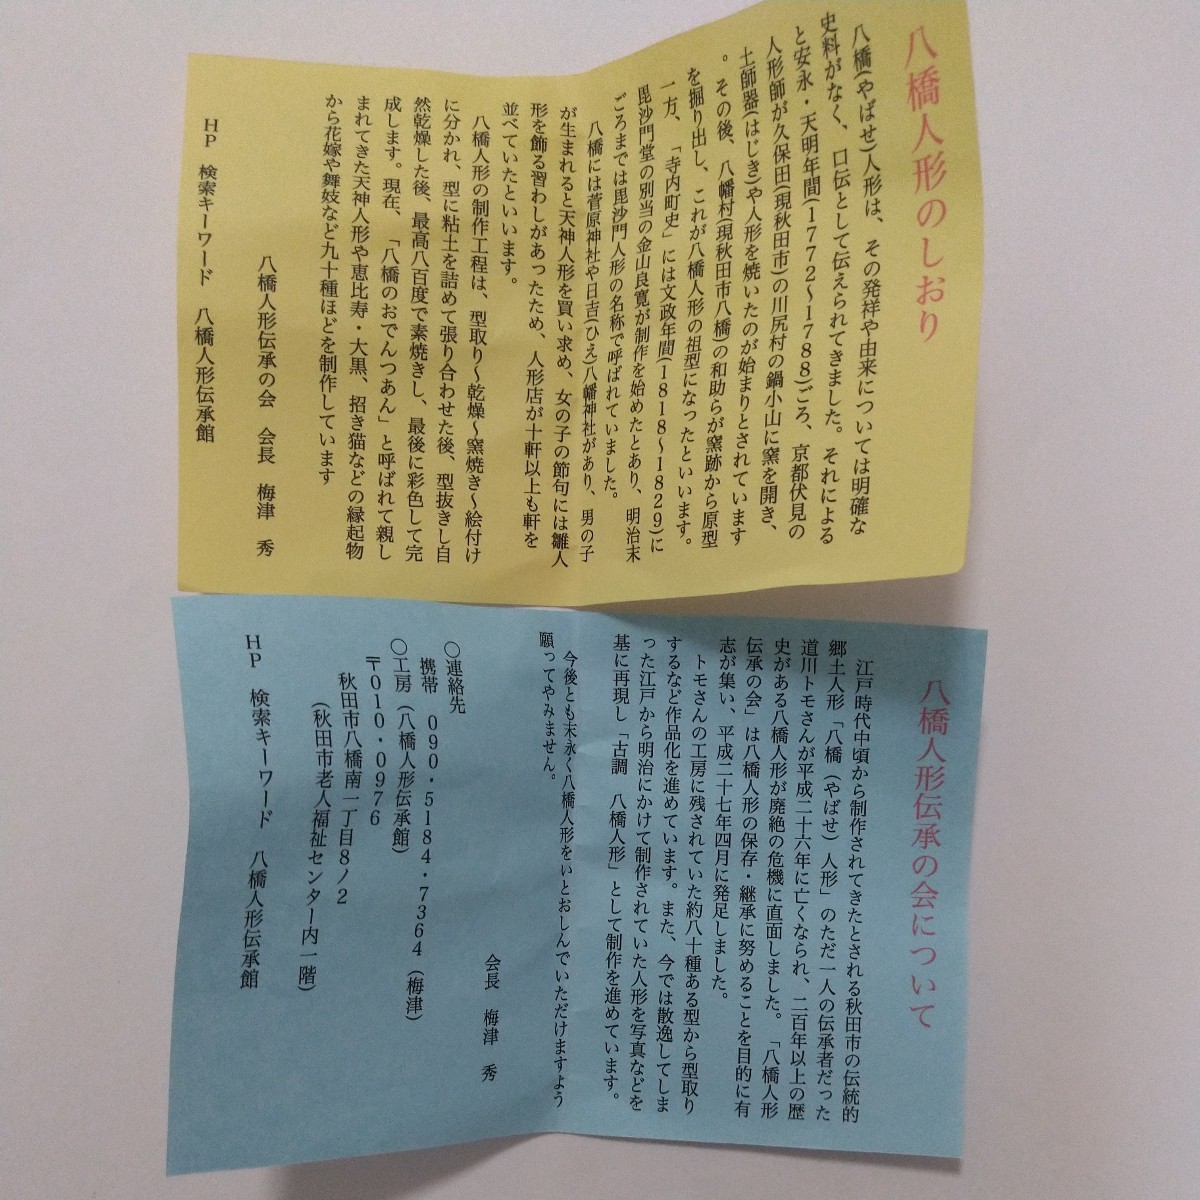 八橋人形のしおり
八橋(やばせ)人形は、その発祥や由来については明確な
史料がなく、口伝として伝えられてきました。それによる
と安永・天明年間(1772～1788)ごろ、京都伏見の
人形師が久保田(現秋田市)の川尻村の鍋小山に窯を開き、
土師器(はじき)や人形を焼いたのが始まりとされています
。その後、八幡村(現秋田市八橋)の和助らが窯跡から原型
を掘り出し、これが八橋人形の祖型になったといいます。
一方、「寺内町史」には文政年間(1818～1829)に
毘沙門堂の別当の金山良寛が制作を始めたとあり、明治末
ごろまでは毘沙門人形の名称で呼ばれていました。
八橋には菅原神社や日吉(ひえ)八幡神社があり、男の子
が生まれると天神人形を買い求め、女の子の節句には雛人
形を飾る習わしがあったため、人形店が十軒以上も軒を
並べていたといいます。
八橋人形の制作工程は、型取り～乾燥～窯焼き～絵付け
に分かれ、型に粘土を詰めて張り合わせた後、型抜きし自
然乾燥した後、最高八百度で素焼きし、最後に彩色して完
成します。現在、「八橋のおでんつあん」と呼ばれて親し
まれてきた天神人形や恵比寿・大黒、招き猫などの縁起物
から花嫁や舞妓など九十種ほどを制作しています
八橋人形伝承の会 会長 梅津 秀
HP 検索キーワード 八橋人形伝承館
八橋人形伝承の会について
江戸時代中頃から制作されてきたとされる秋田市の伝統的
郷土人形「八橋（やばせ）人形」のただ一人の伝承者だった
道川トモさんが平成二十六年に亡くなられ、二百年以上の歴
史がある八橋人形が廃絶の危機に直面しました。「八橋人形
伝承の会」は八橋人形の保存・継承に努めることを目的に有
志が集い、平成二十七年四月に発足しました。
トモさんの工房に残されていた約八十種ある型から型取り
するなど作品化を進めています。また、今では散逸してしま
った江戸から明治にかけて制作されていた人形を写真などを
基に再現し「古調 八橋人形」として制作を進めています。
今後とも末永く八橋人形をいとおしんでいただけますよう
願ってやみません。
会長 梅津 秀
〇連絡先
携帯 090・5184・7364（梅津）
〇工房（八橋人形伝承館）
〒010・0976
秋田市八橋南一丁目8ノ2
（秋田市老人福祉センター内一階）
HP 検索キーワード 八橋人形伝承館